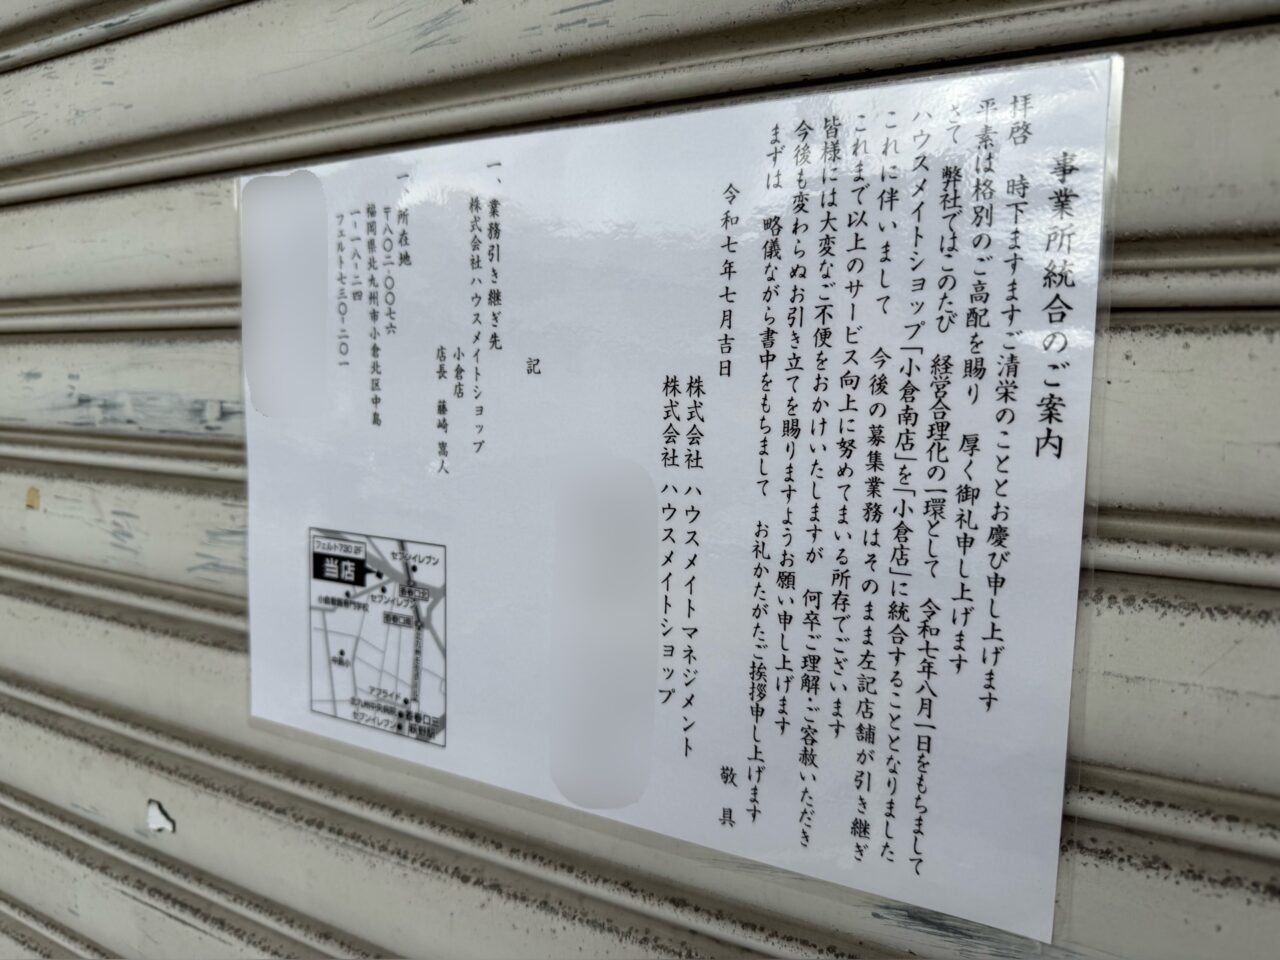 事業所統合のご案内
拝啓　時下ますますご清栄のこととお慶び申し上げます
平素は格別のご高配を賜り　厚く御礼申し上げます
さて　弊社ではこのたび　経営合理化の一環として　令和七年八月一日をもちまして
ハウスメイトショップ「小倉南店」を「小倉店」に統合することとなりました
これに伴いまして　今後の募集業務はそのまま左記店舗が引き継ぎ
これまで以上のサービス向上に努めてまいる所存でございます
皆様には大変なご不便をおかけいたしますが　何卒ご理解ご容赦いただき
今後も変わらぬお引き立てを賜りますようお願い申し上げます
まずは　略儀ながら書中をもちまして　お礼かたがたご挨拶申し上げます
敬具
令和七年七月吉日
株式会社 ハウスメイトマネジメント
株式会社 ハウスメイトショップ
記
一、業務引き継ぎ先
株式会社ハウスメイトショップ
小倉店
店長　藤崎　嵩人
一　所在地
〒八〇二-〇〇七六
福岡県北九州市小倉北区中島
一-一八-二四
フェルト七三〇-二〇一
フェルト730 2F
当店
セブンイレブン
セブンイレブン
中島小
アプライド
セブンイレブン